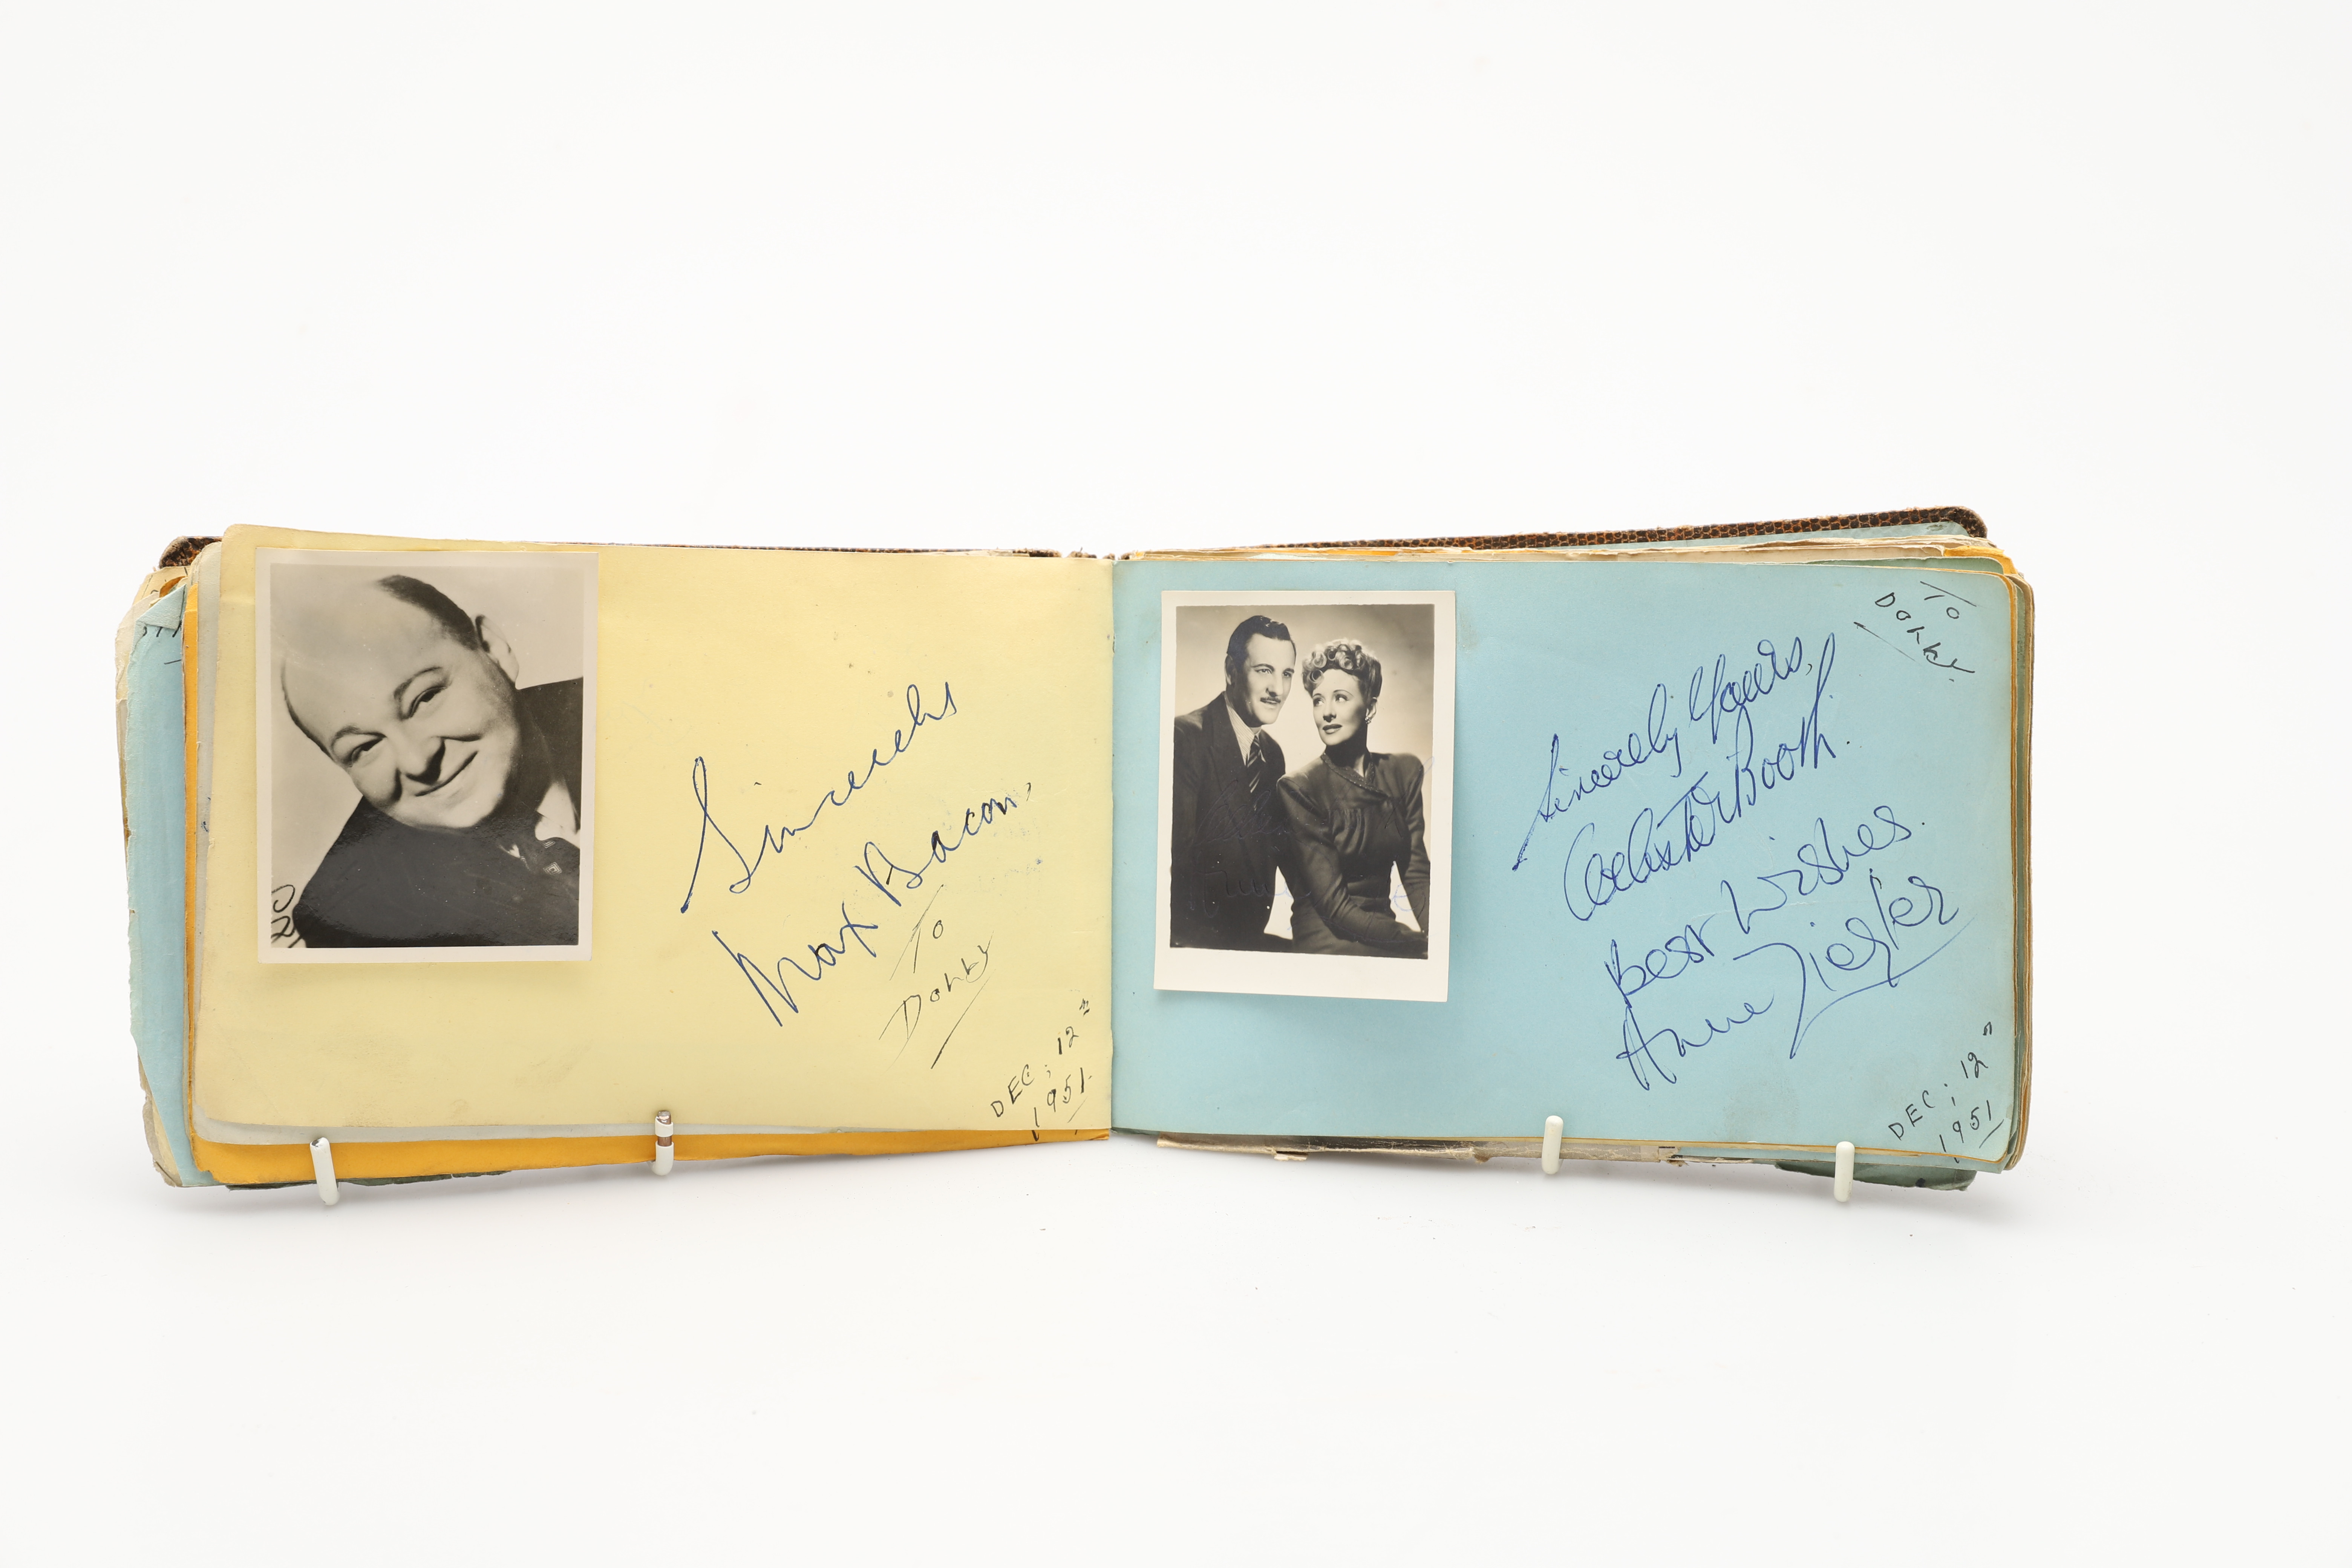 Sincerely
Max Bacon,
To
Donky
DEC; 12"
1951.
To
Donky.
Sincerely Yours,
Webster Booth.
Best Wishes.
Anne Ziegler
DEC; 12"
1951